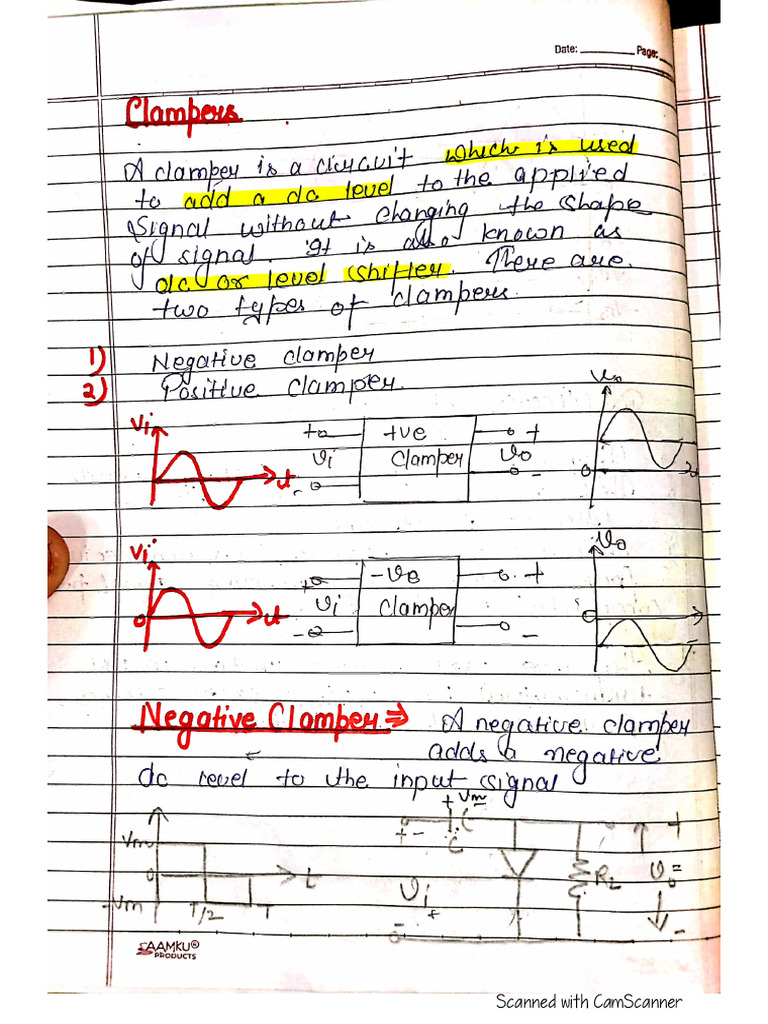 Date: ________ Page: __
Clampers
A clamper is a circuit which is used
to add a dc level to the applied
Signal without changing the shape
of signal. It is also known as
dc or level shifter. There are
two types of clampers.
1) Negative clamper
2) Positive clamper
Vi
t
+
Vi
-
+ve
clamper
+
Vo
-
Vo
0
Vi
0
t
+
Vi
-
-ve
clamper
+
-
Vo
0
Negative Clamper ⇒ A negative clamper
adds a negative
dc level to the input signal
Vm
0
-Vm
T/2
T
t
+ Vm -
C
+ -
Vi
- +
RL
+
Vo =
-
SAAMKU®
PRODUCTS
Scanned with CamScanner